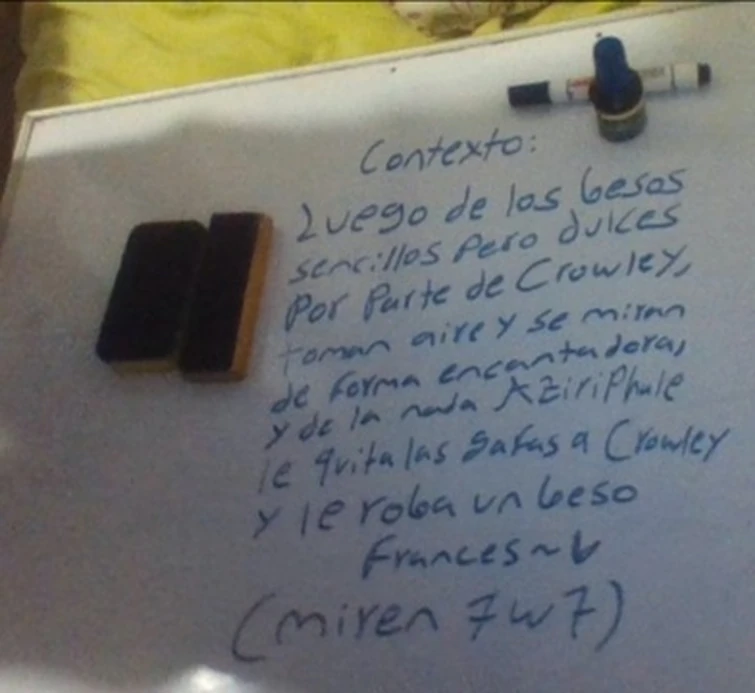 Contexto:
Luego de los besos
sencillos Pero dulces
Por Parte de Crowley,
toman aire y se miran
de forma encantadora,
y de la nada AziriPhale
le quita las gafas a Crowley
y le roba un beso
Frances~
(miren 7w7)